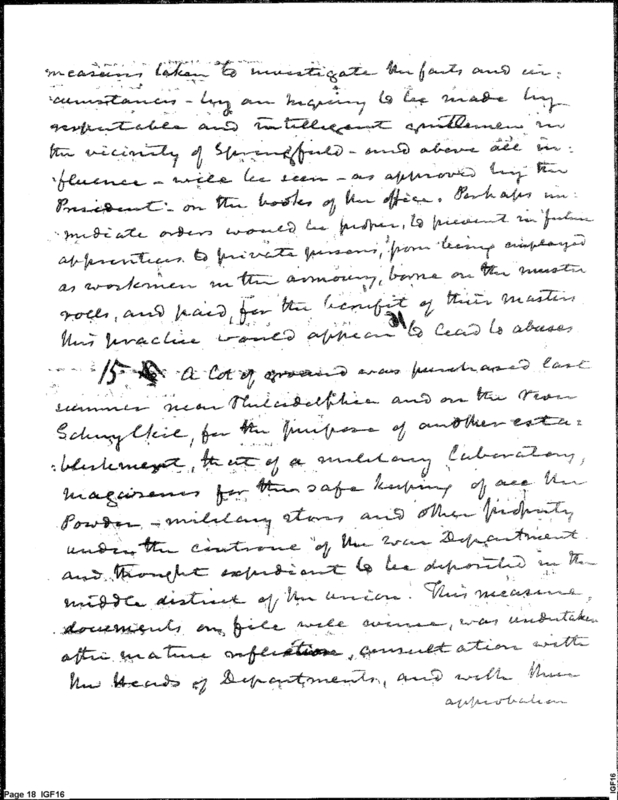 measures taken to investigate the facts and cir:
cumstances - by an inquiry to be made by
respectable and intelligent gentlemen in
the vicinity of Springfield - and above all in:
:fluence - will be seen - as approved by the
President - on the books of the office. Perhaps im:
mediate orders would be proper, to prevent in future
apprentices to private persons, from being employed
as workmen in the armoury, borne on the muster
rolls, and paid, for the benefit of their masters
this practice would appear to lead to abuses
15 A lot of ground was purchased last
summer near Philadelphia and on the river
Schuylkill, for the purpose of another esta:
:blishment, that of a military Laboratory,
magazines for the safe keeping of all the
Powder - military stores and other property
under the controul of the War Department
and thought expedient to be deposited in the
middle district of the union. This measure,
documents on file will evince, was undertaken
after mature reflection, consultation with
the Heads of Departments, and with their
approbation
Page 18 IGF16
IGF16